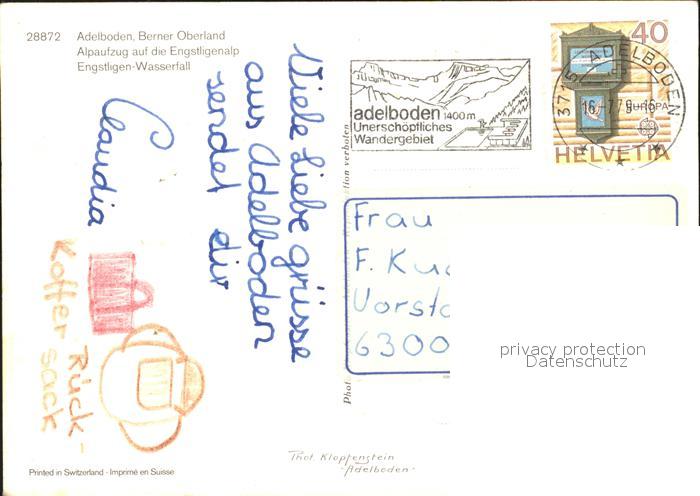 28872 Adelboden, Berner Oberland
Alpaufzug auf die Engstligenalp
Engstligen-Wasserfall
Viele liebe grüsse
aus Adelboden
sendet dir
Claudia
Koffer
Rück-
sack
adelboden 1400m
Unerschöpfliches
Wandergebiet
3715 ADELBODEN
16.-7.79
40
EUROPA
HELVETIA
tion verboten
Frau
F.
6300
privacy protection
Datenschutz
Phot.
Phot. Klopfenstein
-Adelboden-
Printed in Switzerland - Imprimé en Suisse